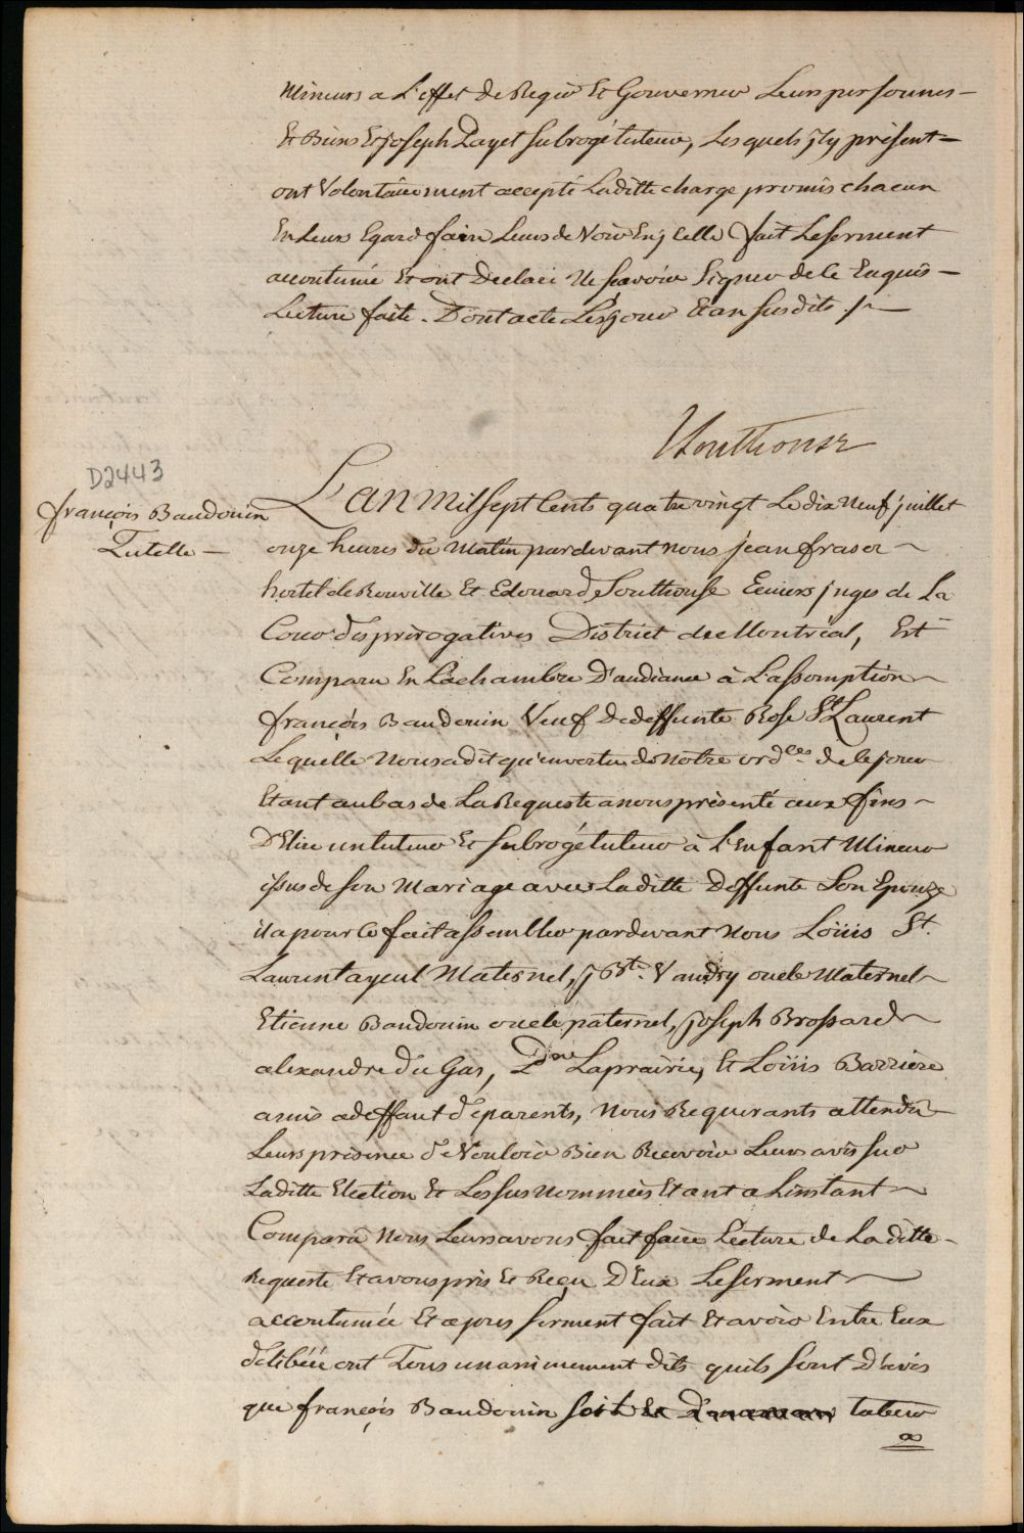 Mineurs a L'effet de Regir Et Gouverner Leurs personnes —
Et Biens Et joseph Payet subrogé tuteur, Lesquels j'ly présent —
ont Volontairement accepté Laditte charge promis chacun
En Leur Egard faire Leurs devoir En j Celle fait Leserment
accoutumé Et ont Declaré Ne sçavoir Signer de Ce Enquis —
Lecture faite. Dont acte Les jour Et an susdits ./. —
Southouse
D2443
françois Baudouin
Tutelle —
L'an Mil sept Cents quatre vingt Le dix Neuf juillet
onze heures du Matin pardevant nous jean fraser
hertel de Rouville Et Edouard Southouse Ecuiers juges de La
Cour des prérogatives District de Montréal, Est
Comparu En Lachambre D'audiance à L'assomption
françois Baudouin Veuf de deffunte Rose St Laurent
Lequelle Nous a dit qu'en vertu de Notre ordces de Ce jour
Etant au bas de La Requeste a nous présenté aux fins
D'Elire un tuteur Et subrogé tuteur à L'Enfant Mineur
issus de son Mariage avec Laditte Deffunte Son Epouze
il a pour Ce fait assembler pardevant Nous Loüis St.
Laurent ayeul Maternel, j Bte. Vaudry oncle Maternel
Etienne Baudouin oncle paternel, joseph Brossard
alexandre Du Gas, Dne Laprairie, Et Loüis Barriere
amis adeffaut de parents, Nous Requerants attendu
Leurs présence de Vouloir Bien Recevoir Leurs avis sur
Laditte Election Et Les sus nommées Etant a Linstant
Comparu Nous Leurs avons fait faire Lecture de Laditte
Requeste Et avons pris Et Reçu D'Eux Leserment
accoutumée Et apres serment fait Et avoir Entre Eux
délibéré ont Tous unanimement dits quils sont D'avis
que françois Baudouin soit tuteur
a